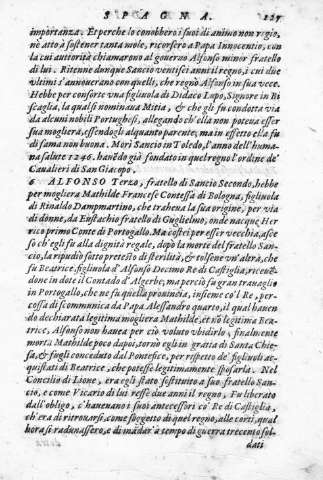 SPAGNA. 127
importanza. Et perche lo conobbero i suoi di animo non regio,
ne atto à sostener tanta mole, ricorsero a Papa Innocentio, con
la cui autorità chiamarono al gouerno Alfonso minor fratello
di lui. Ritenne dunque Sancio ventisei anni il regno, i cui due
vltimi s'annouerano con quelli, che regnò Alfonso in sua vece.
Hebbe per consorte vna figliuola di Didaco Lupo, Signore in Bi
scaglia, la qual si nominaua Mitia, & che gli fu condotta via
da alcuni nobili Portughesi, allegando ch'ella non poteua esser
sua mogliera, essendogli alquanto parente; ma in effetto ella fu
di fama non buona. Morì Sancio in Toledo, l'anno dell'huma
na salute 1246. hauēdo già fondato in quel regno l'ordine de'
Caualieri di San Giacopo.
6 ALFONSO Terzo, fratello di Sancio Secondo, hebbe
per mogliera Mathilde Francese Contessa di Bologna, figliuola
di Rinaldo Dampmartino, che trahena la sua origine, per via
di donne, da Eustachio fratello di Guglielmo, onde nacque Hēr
rico primo Conte di Portogallo. Ma costei per esser vecchia, asce
so ch'egli fu alla dignità regale, dopo la morte del fratello San-
cio, la ripudiò sotto pretesto di sterilità, & tolsene vn'altra, che
fu Beatrice, figliuola d'Alfonso Decimo Re di Castiglia, riceuē
done in dote il Contado d'Algerbe; ma perciò fu gran trauaglio
in Portogallo, che ne fu quella prouincia, insieme co'l Re, per-
cossa di scommunica da Papa Alessandro quarto, il qual hauen
do dechiarata legitima mogliera Mathilde, et nō legitima Bea-
trice, Alfonso non hauea per ciò voluto vbidirlo; finalmente
morta Mathilde poco dapoi, tornò egli in gratia di Santa Chie-
sa, & fugli conceduto dal Pontefice, per rispetto de' figliuoli ac-
quistati di Beatrice, che potesse legitimamente sposarla. Nel
Concilio di Lione, era egli stato sostituito a suo fratello San-
cio, e come Vicario di lui resse due anni il regno. Fu liberato
dall'obligo, c'haueuano i suoi antecessori co' Re di Castiglia,
ch'era di ritrouarsi, come soggetto di quel regno, alle corti, qual
hora si radunassero, e di mādar'à tempo di guerra trecento sol-
dati